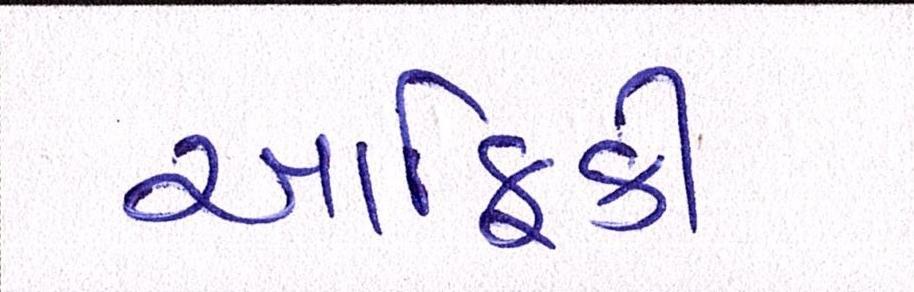 આફ્રિકી